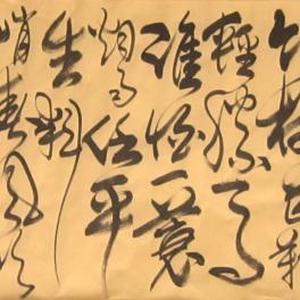 竹杖芒鞋
輕勝馬
誰怕一蓑
烟雨任平
生料
峭春風吹